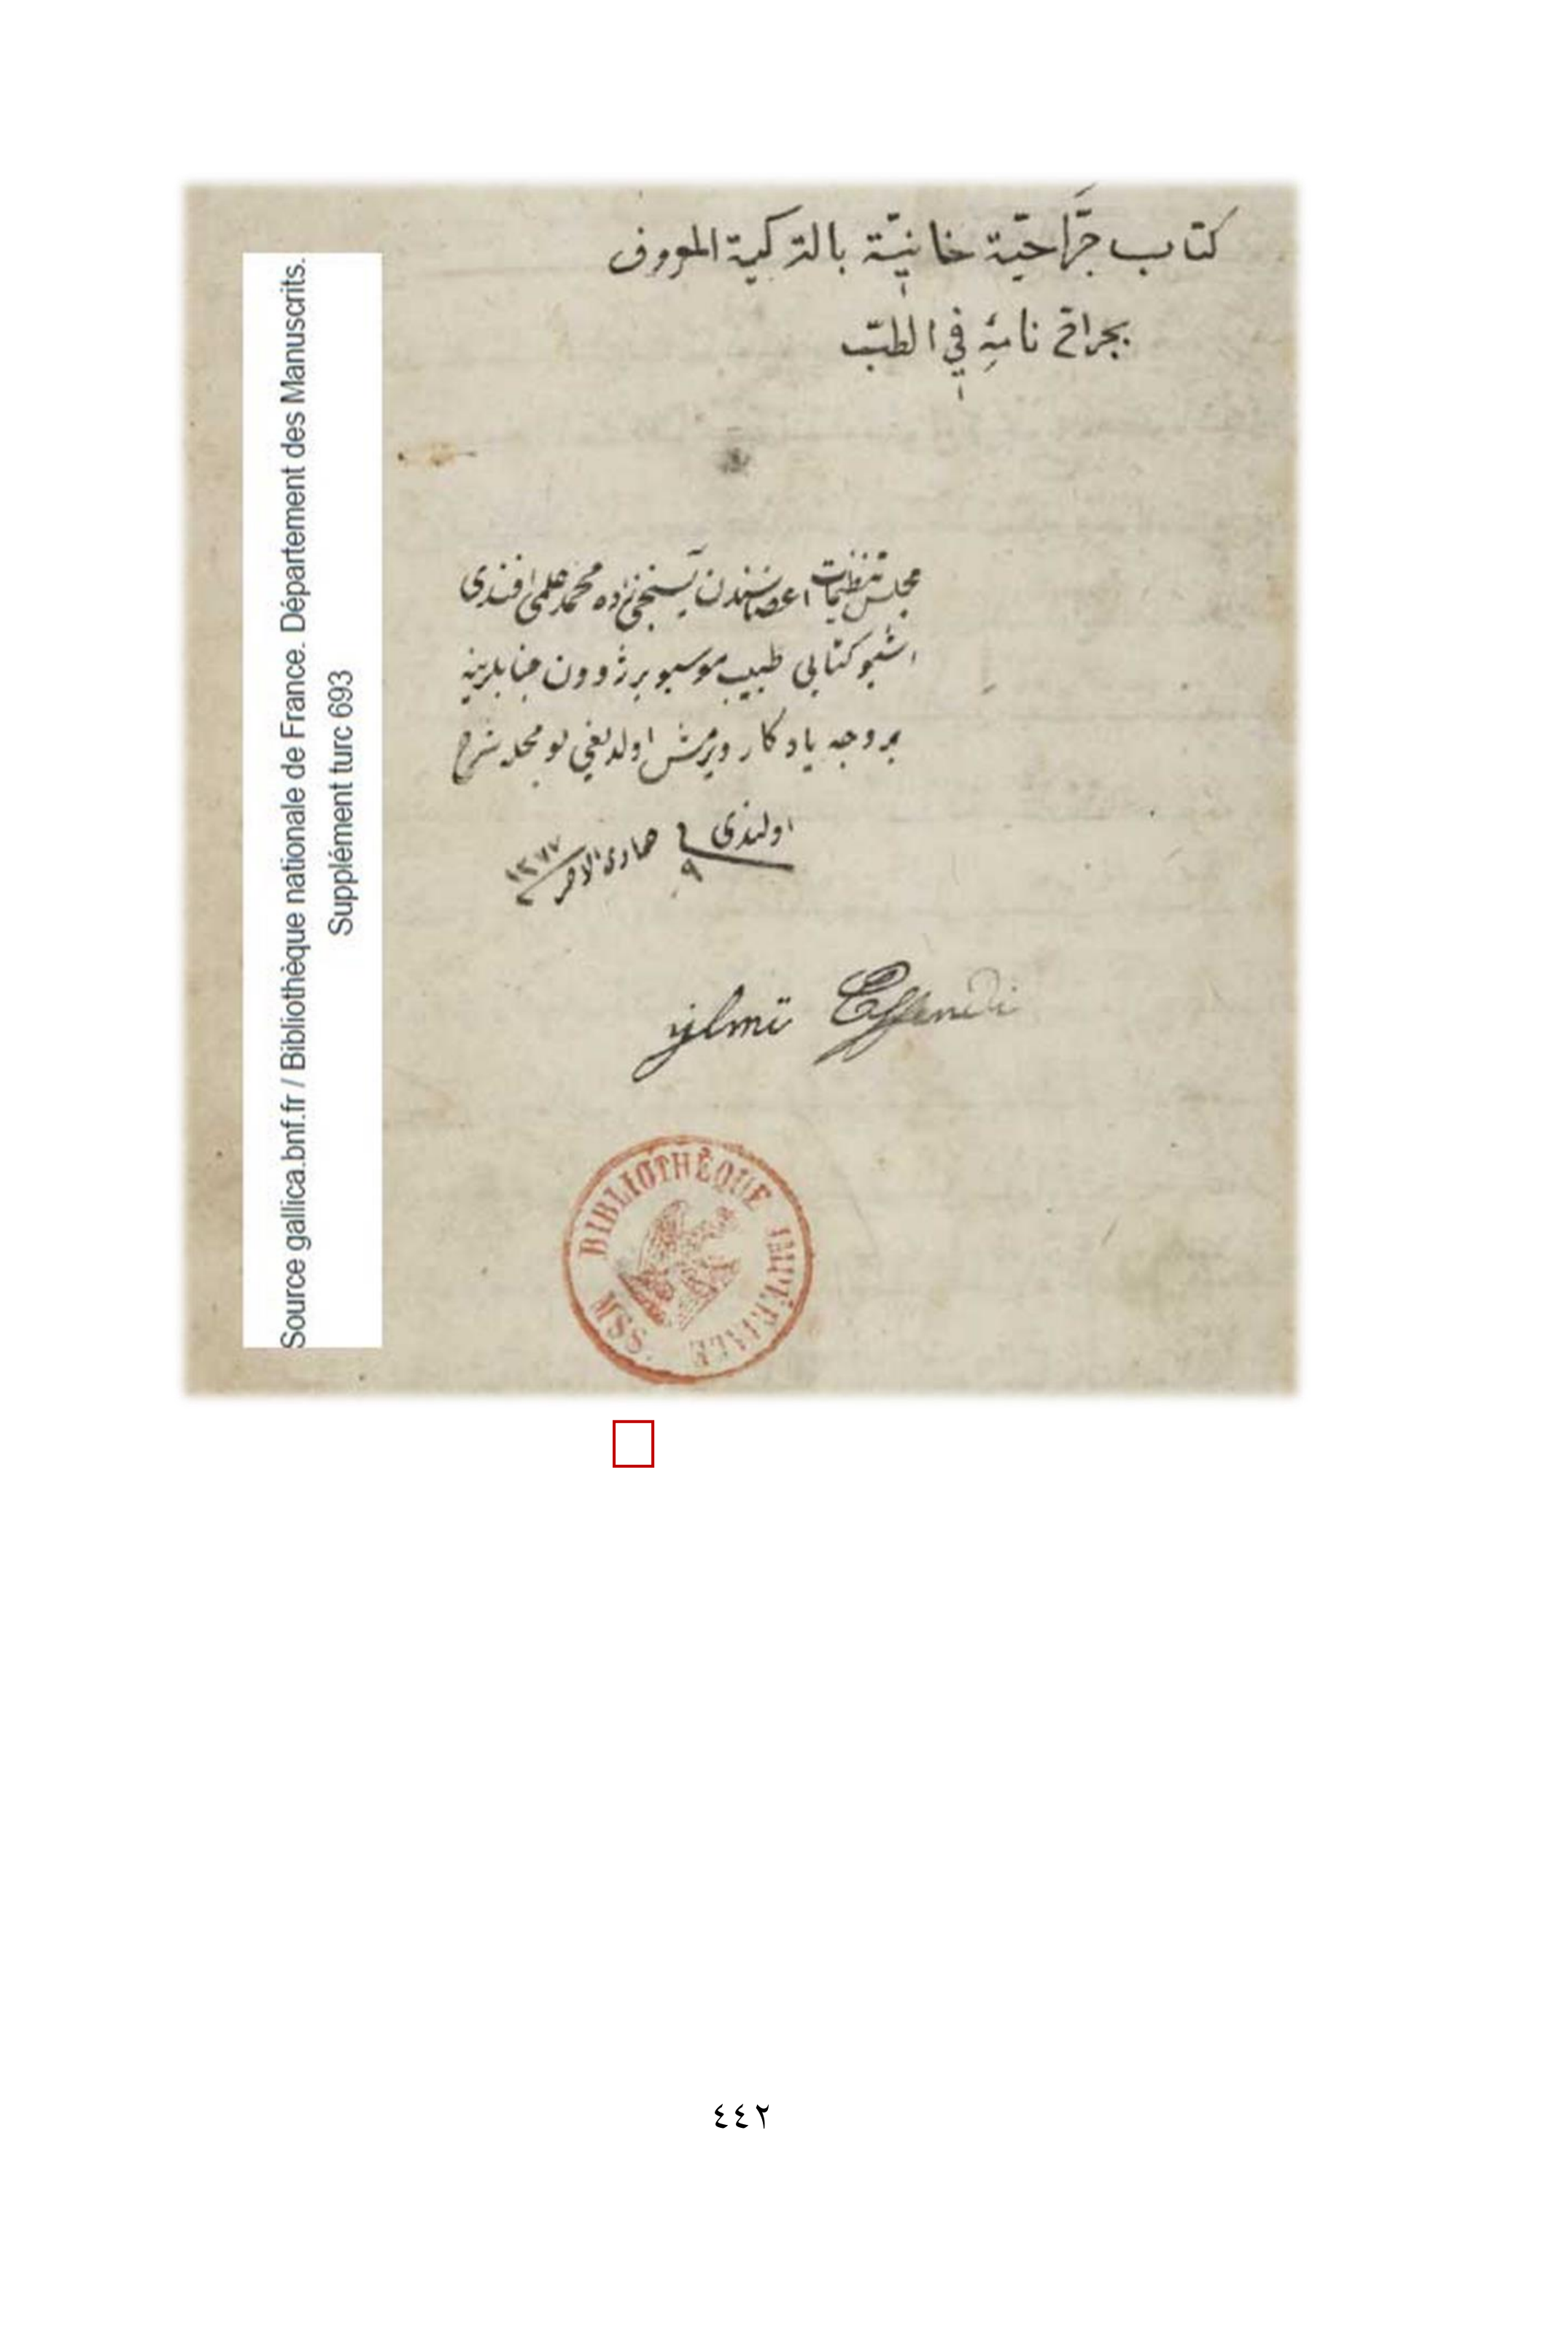 كتاب جَرّاحيّة خانيّة بالتركية المعروف
بجراح نامهِ في الطبّ
مجلس تنظيمات اعضاسندن محمد علمى افندى
اشبو كتابى طبيب موسيو برژوون جنابلرينه
بر وجه يادكار ويرمش اولديغى بو محله شرح
اولندى فى ٩ جمادى الاخر ١٢٧٧
ylmï Effendi
BIBLIOTHÈQUE IMPÉRIALE MSS.
Source gallica.bnf.fr / Bibliothèque nationale de France. Département des Manuscrits.
Supplément turc 693
٤٤٢